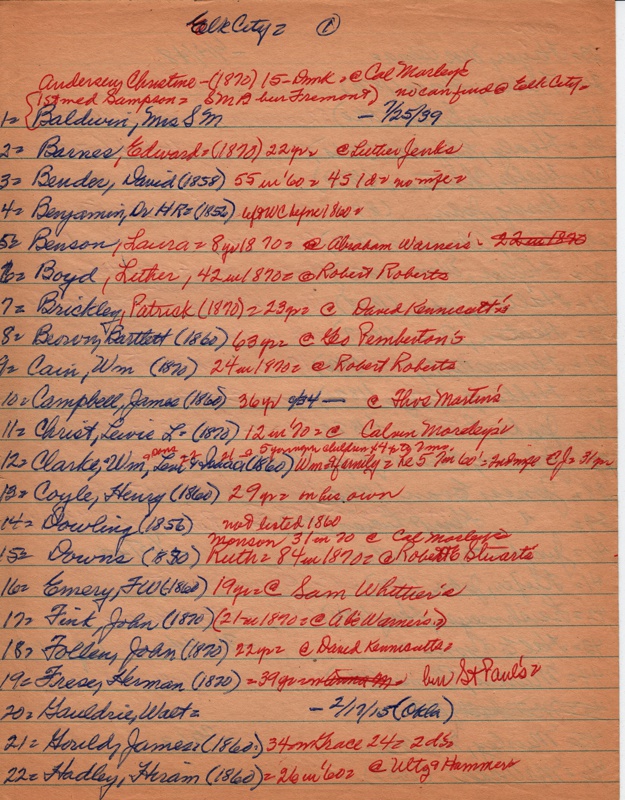 Elk City = ①
Andersen, Christine - (1870) 15 - Dmk = @ Cal Marley's
(1st med Sampson = SMB bur Fremont) no can find @ Elk City =
1= Baldwin, Mrs S M - 7/25/39
2= Barnes, Edward = (1870) 22 yr = @ Luther Jenks
3= Bender, David (1858) 55 in '60 = 45 1d = no mife =
4= Benjamin, Dr HR = (1856) 1860 =
5= Benson, Laura = 8 yr 1870 = @ Abraham Warner's - 22 in 1870
6= Boyd, Luther, 42 in 1870 = @ Robert Roberts
7= Brickley, Patrick (1870) = 23 yr = @ David Kennicutt's
8= Brown, Bartlett (1860) 63 yr = @ Geo Pemberton's
9= Cain, Wm (1870) 24 in 1870 = @ Robert Roberts
10= Campbell, James (1860) 36 yr - @ Thos Martin's
11= Christ, Lewie L = (1870) 12 in '70 = @ Calvin Moreley's
5 younger children
12= Clarke, Wm, Levi & Isaac (1860) Wm & family = Re 5 7 in 60' = 2nd mife = 31 yr
13= Coyle, Henry (1860) 29 yr = on his own
14= Dowling (1856) not listed 1860
Monson 31 in 70 @ Cal Morley's
15= Downs (1870) Ruth = 84 in 1870 = @ Robert E Stuarts
16= Emery, FW (1860) 19 yr = @ Sam Whittier's
17= Fink, John (1870) (21 in 1870 = @ Abe Warner's =)
18= Follen, John (1870) 22 yr = @ David Kennicutts =
19= Frese, Herman (1870) = 39 yr = bur St Paul's =
20= Gauldrie, Walt = - 2/17/15 (Okla)
21= Gould, James = (1860) 34 m Grace 24 = 2 d's
22= Hadley, Hiram (1860) = 26 in '60 = @ Hammers